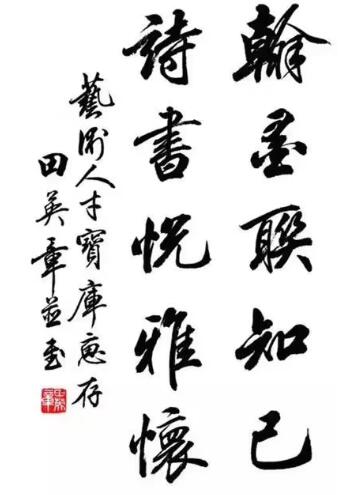 翰墨联知己
詩書悦雅懷
藝術人才寶庫惠存
田英章並書